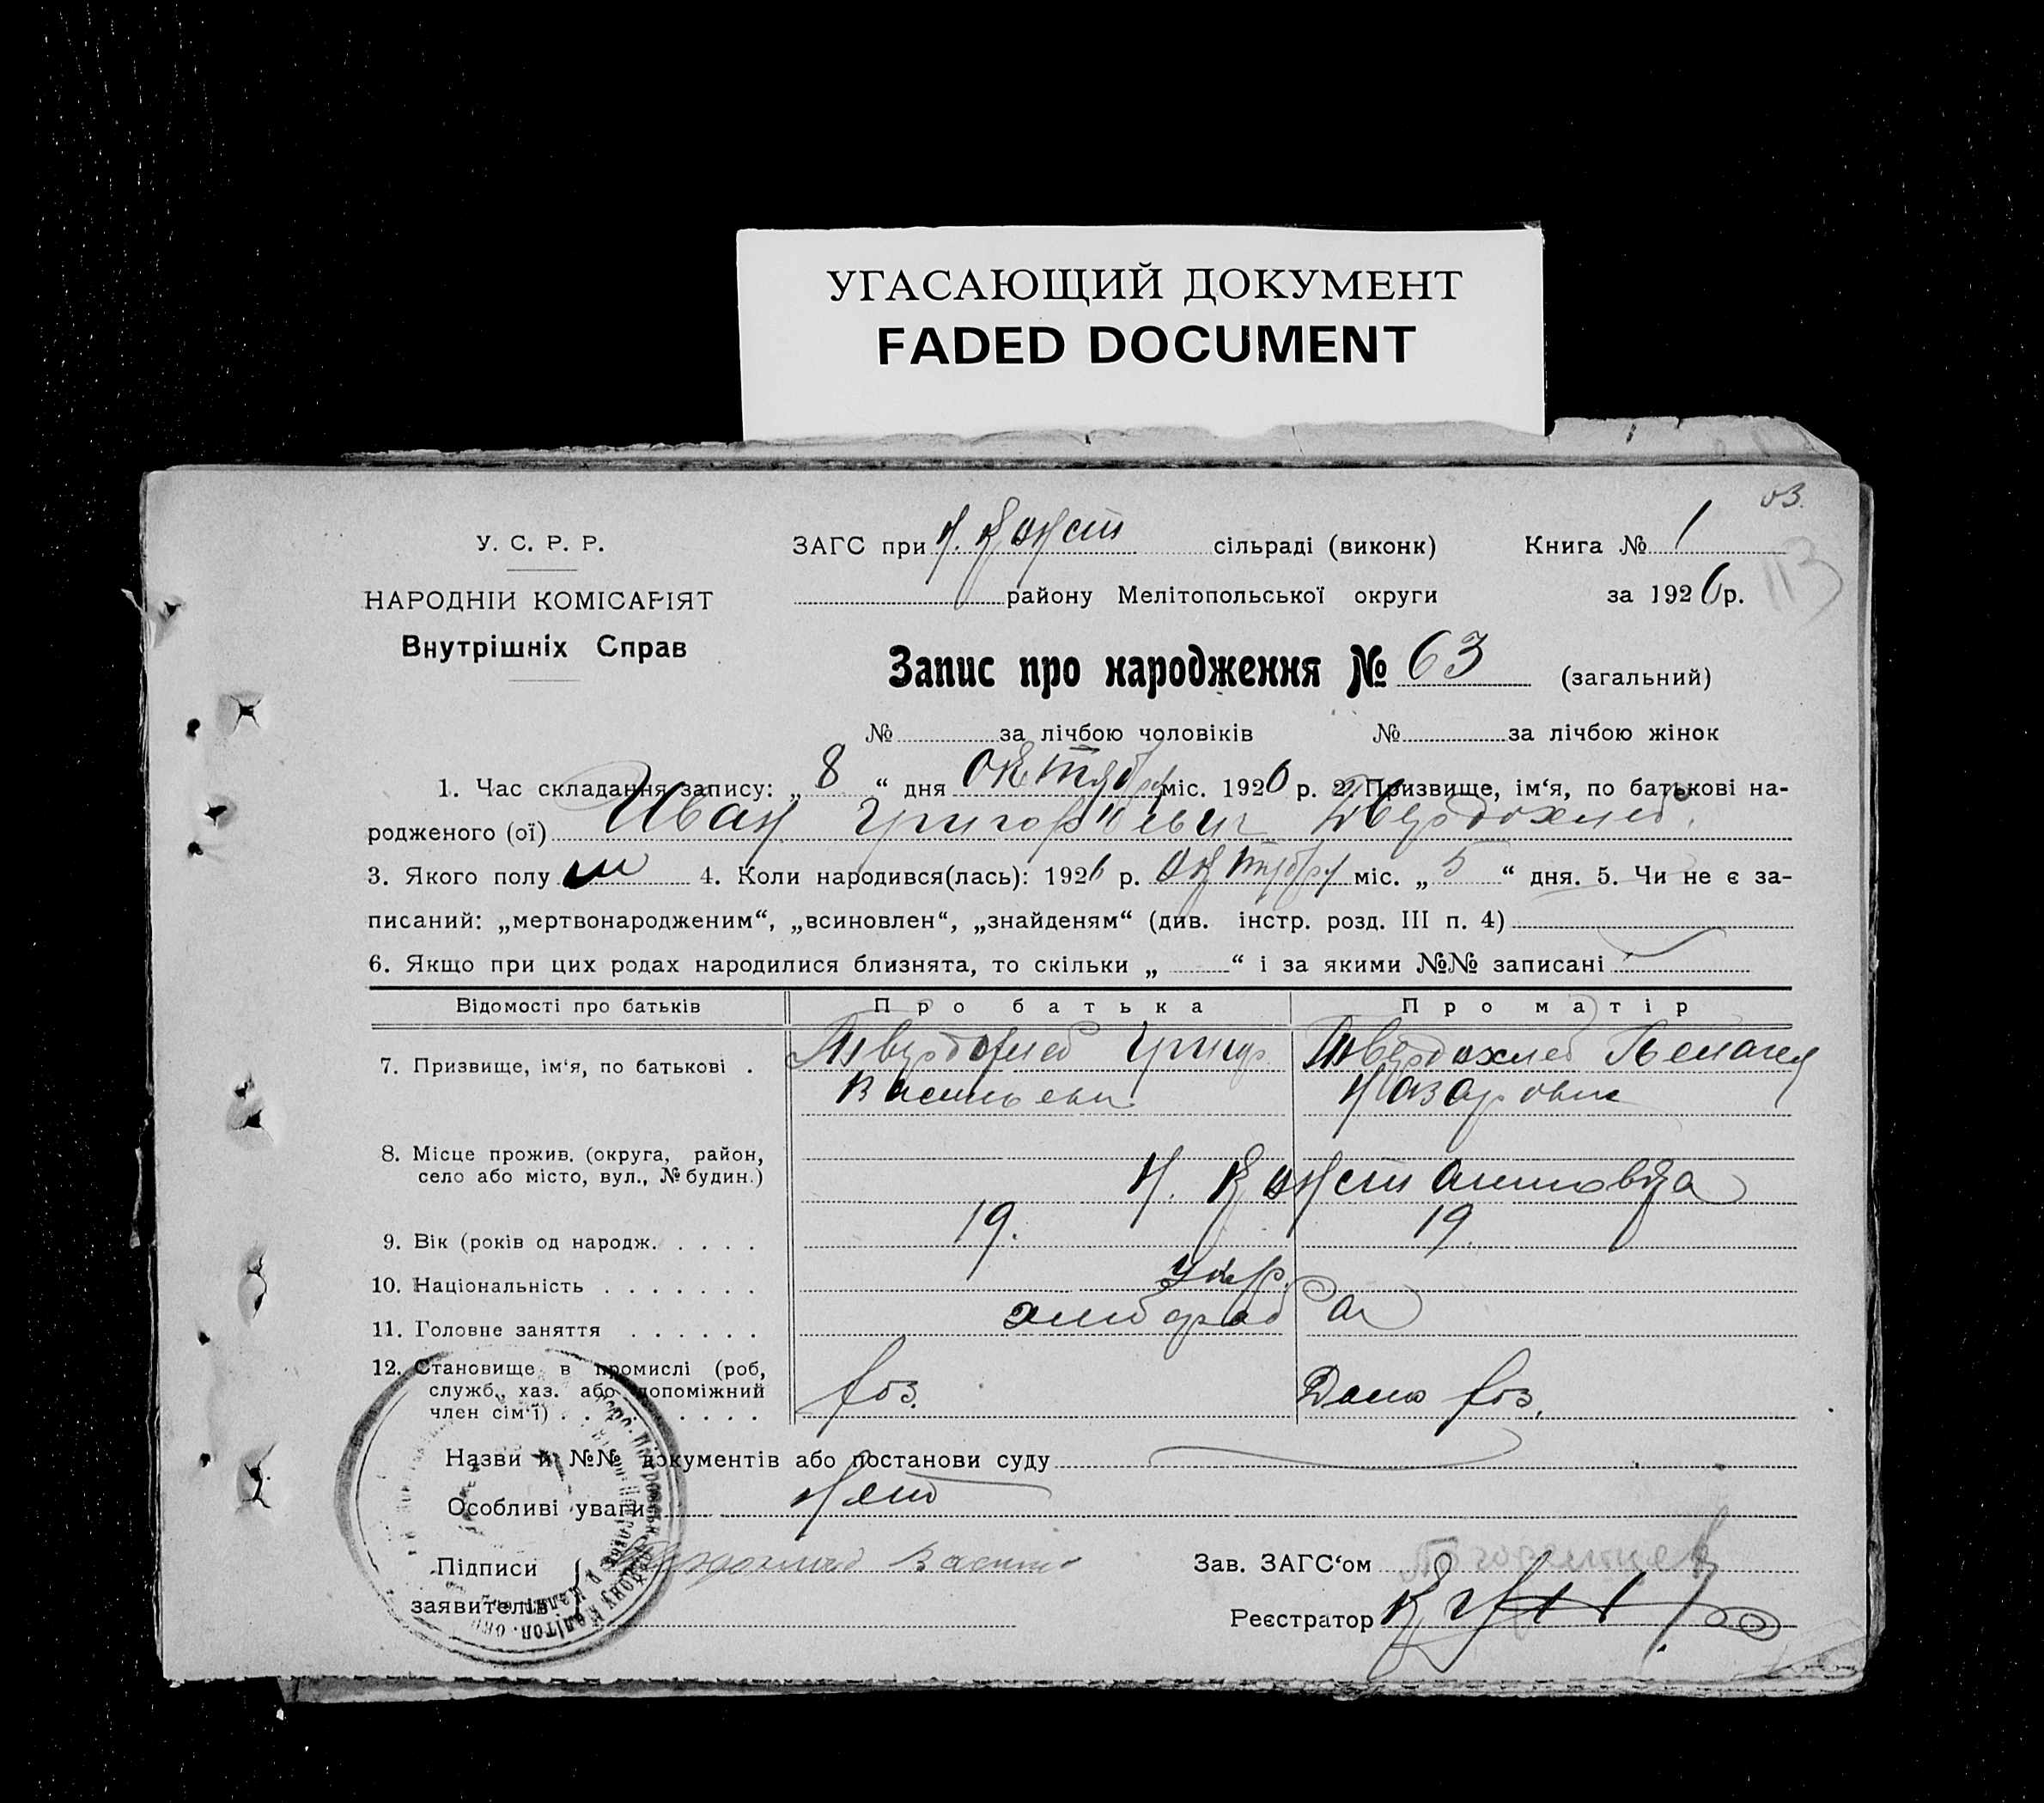 УГАСАЮЩИЙ ДОКУМЕНТ
FADED DOCUMENT
63.
113
У. С. Р. Р.
НАРОДНІЙ КОМІСАРІЯТ
Внутрішніх Справ
ЗАГС при Н. Конст сільраді (виконк) Книга № 1
району Мелітопольської округи за 1926 р.
Запис про народження № 63 (загальний)
№ за лічбою чоловіків № за лічбою жінок
1. Час складання запису: „ 8 “ дня Октября міс. 1926 р. 2. Призвище, ім‘я, по батькові на-
родженого (ої) Иван Григорьевич Твердохлеб.
3. Якого полу м 4. Коли народився(лась): 1926 р. Октября міс. „ 5 “ дня. 5. Чи не є за-
писаний: „мертвонародженим“, „всиновлен“, „знайденям“ (див. інстр. розд. III п. 4)
6. Якщо при цих родах народилися близнята, то скільки „ “ і за якими №№ записані
Відомості про батьків Про батька Про матір
7. Призвище, ім‘я, по батькові . Твердохлеб Григор. Твердохлеб Пелагея
Васильевич Назаровна
8. Місце прожив. (округа, район,
село або місто, вул., № будин.) Н. Константиновка
9. Вік (років од народж. . . . . 19. 19.
10. Національність . . . . . . . Укр.
11. Головне заняття . . . . . . хлебороб
12. Становище в промислі (роб,
служб., хаз. або допоміжний
член сім‘ї) . . . . . . . . . хоз. Дома хоз.
Назви й №№ документів або постанови суду
Особливі уваги Нет
Підписи Твердохлеб
заявителів
Зав. ЗАГС‘ом
Реєстратор